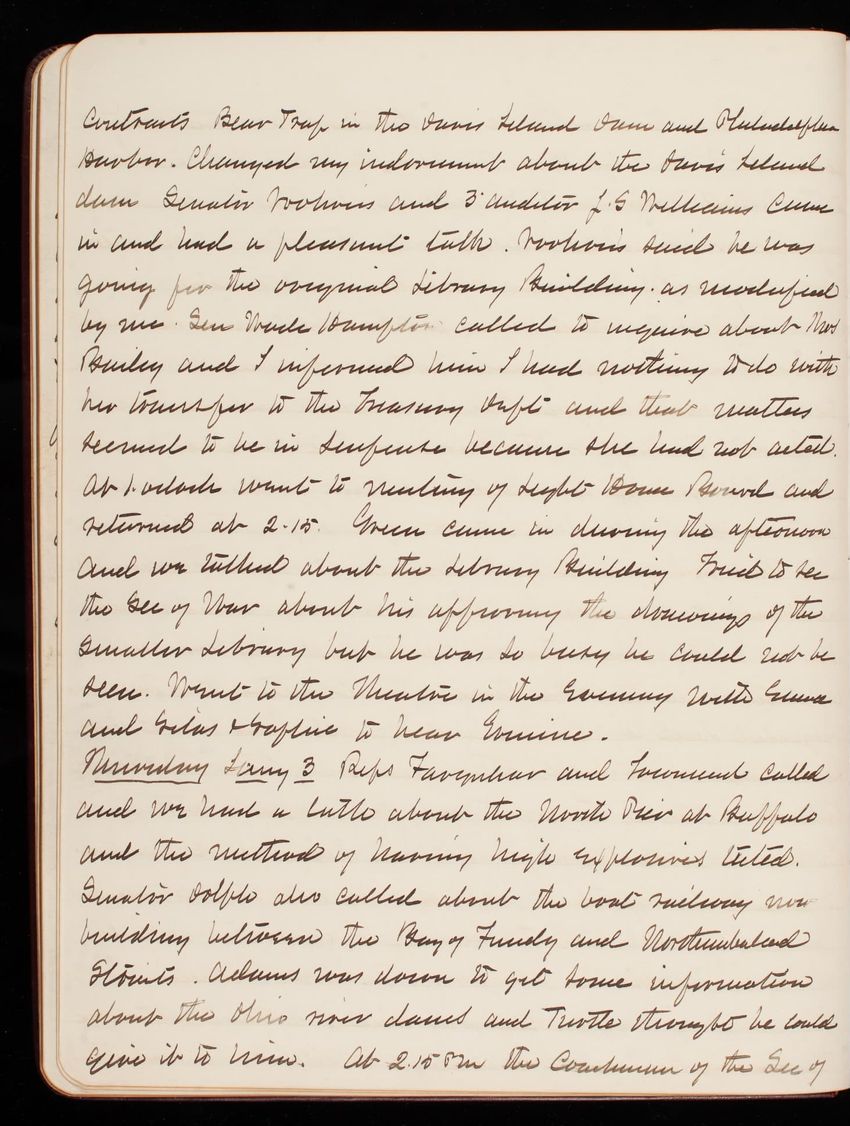 Contracts Bear Trap in the Davis Island Dam and Philadelphia
Harbor. Changed my indorsement about the Davis Island
dam Senator Voorhies and 3d auditor J. S Williams Came
in and had a pleasant talk. Voorhies said he was
going for the original Library Building. as modified
by me. Gen Wade Hampton called to inquire about Mrs
Bailey and I informed him I had nothing to do with
her transfer to the Treasury Dept and that matters
seemed to be in suspense because she had not acted.
At 1. oclock went to meeting of Light House Board and
returned at 2.15. Green came in during the afternoon
and we talked about the Library Building Tried to see
the Sec of War about his approving the drawings of the
smaller Library but he was so busy he could not be
seen. Went to the Theatre in the Evening with Emma
and Silas & Sophie to hear Ermine.
Thursday Jany 3 Reps Farquhar and Townsend called
and we had a talk about the North Pier at Buffalo
and the method of having high explosives tested.
Senator Dolph also called about the boat railway now
building between the Bay of Fundy and Northumbaland
Straits. Adams was down to get some information
about the Ohio river dams and Turtle thought he could
give it to him. At 2.15 PM the Coachman of the Sec of